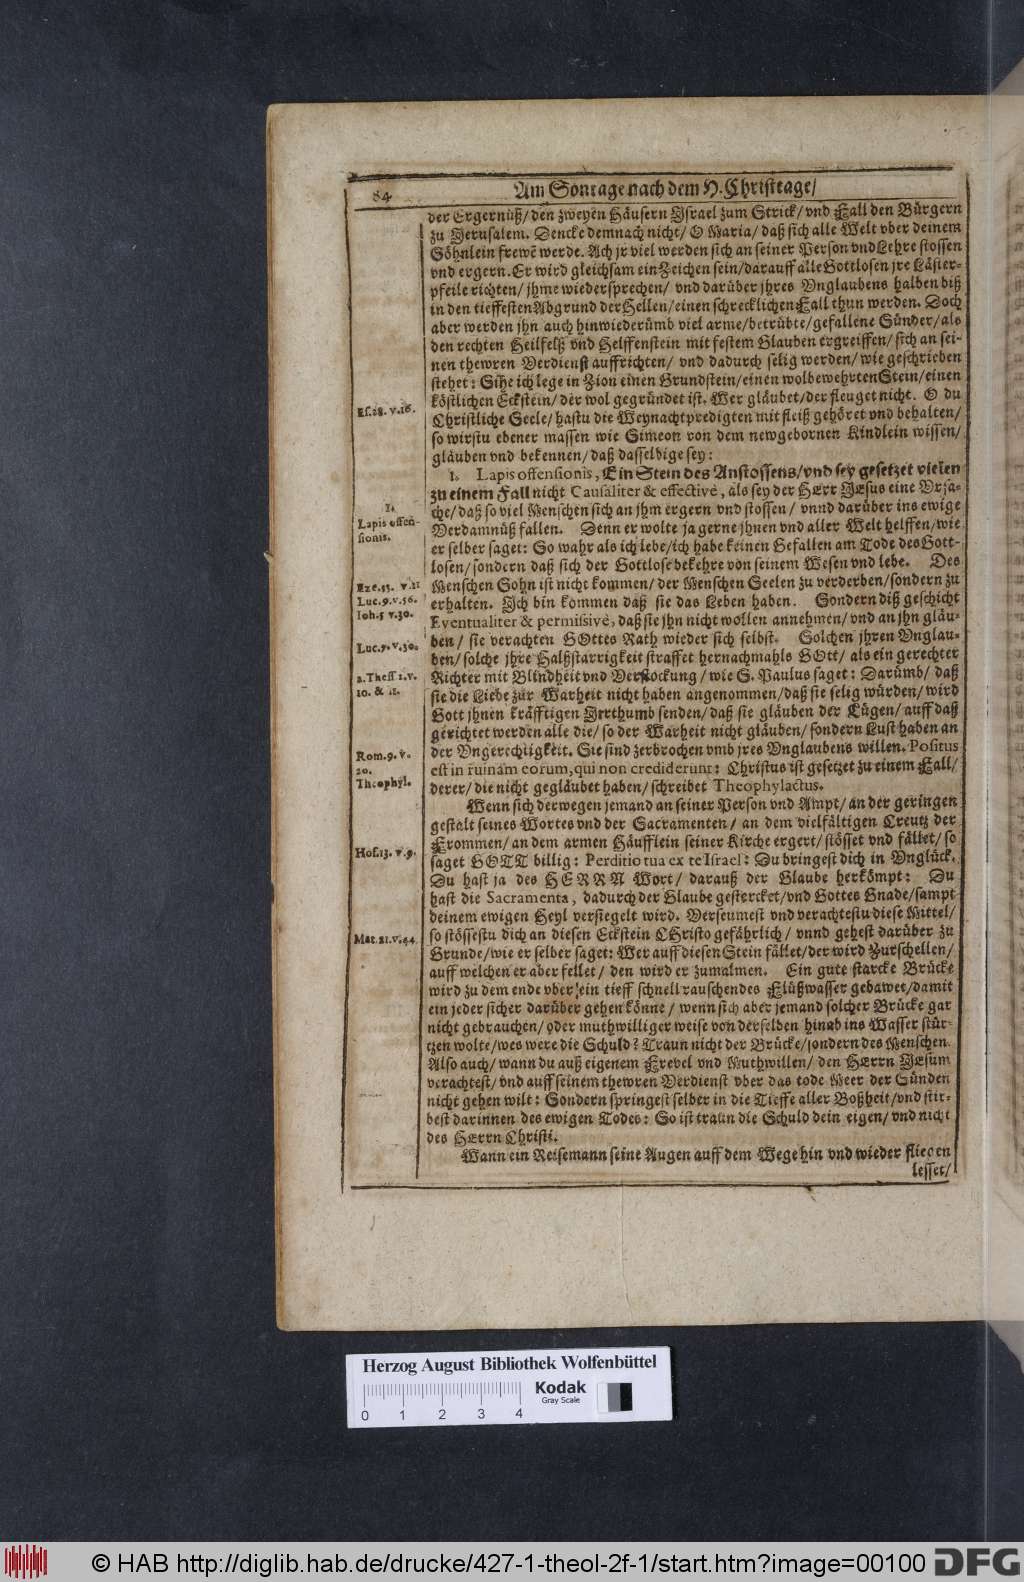 84
Am Sontage nach dem H. Christtage/
der Ergernüß/ den zweyen Häusern Jsrael zum Strick/ vnd Fall den Bürgern
zu Jerusalem. Dencke demnach nicht/ O Maria/ daß sich alle Welt vber deinem
Söhnlein frewē werde. Ach jr viel werden sich an seiner Person vnd Lehre stossen
vnd ergern. Er wird gleichsam ein Zeichen sein/ darauff alle Gottlosen jre Läster-
pfeile richten/ jhme wiedersprechen/ vnd darüber jhres Vnglaubens halben biß
in den tieffesten Abgrund der Hellen/ einen schrecklichen Fall thun werden. Doch
aber werden jhn auch hinwiederümb viel arme/ betrübte/ gefallene Sünder/ als
den rechten Heilfelß vnd Helffenstein mit festem Glauben ergreiffen/ sich an sei-
nen thewren Verdienst auffrichten/ vnd dadurch selig werden/ wie geschrieben
stehet: Sihe ich lege in Zion einen Grundstein/ einen wolbewehrten Stein/ einen
köstlichen Eckstein/ der wol gegründet ist. Wer gläubet/ der fleuget nicht. O du
Es. 28. v. 16.
Christliche Seele/ hastu die Weynachtpredigten mit fleiß gehöret vnd behalten/
so wirstu ebener massen wie Simeon von dem newgebornen Kindlein wissen/
gläuben vnd bekennen/ daß dasselbige sey:
I. Lapis offensionis, Ein Stein des Anstossens/ vnd sey gesetzet vielen
zu einem Fall nicht Causaliter & effectivè, als sey der HErr JEsus eine Vrsa-
I.
Lapis offen-
sionis.
che/ daß so viel Menschen sich an jhm ergern vnd stossen/ vnnd darüber ins ewige
Verdamnüß fallen. Denn er wolte ja gerne jhnen vnd aller Welt helffen/ wie
er selber saget: So wahr als ich lebe/ ich habe keinen Gefallen am Tode des Gott-
losen/ sondern daß sich der Gottlose bekehre von seinem Wesen vnd lebe. Des
Eze. 33. v. 11
Luc. 9. v. 56.
Ioh. 5 v. 30.
Menschen Sohn ist nicht kommen/ der Menschen Seelen zu verderben/ sondern zu
erhalten. Jch bin kommen daß sie das Leben haben. Sondern diß geschicht
Eventualiter & permissivè, daß sie jhn nicht wollen annehmen/ vnd an jhn gläu-
ben/ sie verachten GOttes Rath wieder sich selbst. Solchen jhren Vnglau-
Luc. 7. v. 30.
ben/ solche jhre Halßstarrigkeit straffet hernachmahls GOtt/ als ein gerechter
Richter mit Blindheit vnd Verstockung/ wie S. Paulus saget: Darümb/ daß
2. Thess 2. v.
10. & 11.
sie die Liebe zur Warheit nicht haben angenommen/ daß sie selig würden/ wird
Gott jhnen kräfftigen Jrrthumb senden/ daß sie gläuben der Lügen/ auff daß
gerichtet werden alle die/ so der Warheit nicht gläuben/ sondern Lust haben an
der Vngerechtigkeit. Sie sind zerbrochen vmb jres Vnglaubens willen. Positus
Rom. 9. v.
20.
Theophyl.
est in ruinam eorum, qui non crediderunt: Christus ist gesetzet zu einem Fall/
derer/ die nicht gegläubet haben/ schreibet Theophylactus.
Wenn sich derwegen jemand an seiner Person vnd Ampt/ an der geringen
gestalt seines Wortes vnd der Sacramenten/ an dem vielfältigen Creutz der
Frommen/ an dem armen Häufflein seiner Kirche ergert/ stösset vnd fället/ so
Hos. 13. v. 9.
saget GOTT billig: Perditio tua ex te Israel: Du bringest dich in Vnglück.
Du hast ja des HERRN Wort/ darauß der Glaube herkömpt: Du
hast die Sacramenta, dadurch der Glaube gestercket/ vnd Gottes Gnade/ sampt
deinem ewigen Heyl versiegelt wird. Verseumest vnd verachtestu diese Mittel/
so stössestu dich an diesen Eckstein CHristo gefährlich/ vnnd gehest darüber zu
Mat. 21. v. 44.
Grunde/ wie er selber saget: Wer auff diesen Stein fället/ der wird Zurschellen/
auff welchen er aber fellet/ den wird er zumalmen. Ein gute starcke Brücke
wird zu dem ende vber ein tieff schnell rauschendes Flüßwasser gebawet/ damit
ein jeder sicher darüber gehen könne/ wenn sich aber jemand solcher Brücke gar
nicht gebrauchen/ oder muthwilliger weise von derselben hinab ins Wasser stür-
tzen wolte/ wes were die Schuld? Traun nicht der Brücke/ sondern des Menschen.
Also auch/ wann du auß eigenem Frevel vnd Muthwillen/ den HErrn JEsum
verachtest/ vnd auff seinem thewren Verdienst vber das tode Meer der Sünden
nicht gehen wilt: Sondern springest selber in die Tieffe aller Boßheit/ vnd stir-
best darinnen des ewigen Todes: So ist traun die Schuld dein eigen/ vnd nicht
des HErrn Christi.
Wann ein Reisemann seine Augen auff dem Wege hin vnd wieder fliegen
lesset/
Herzog August Bibliothek Wolfenbüttel
Kodak
Gray Scale
0 1 2 3 4
© HAB http://diglib.hab.de/drucke/427-1-theol-2f-1/start.htm?image=00100
DFG